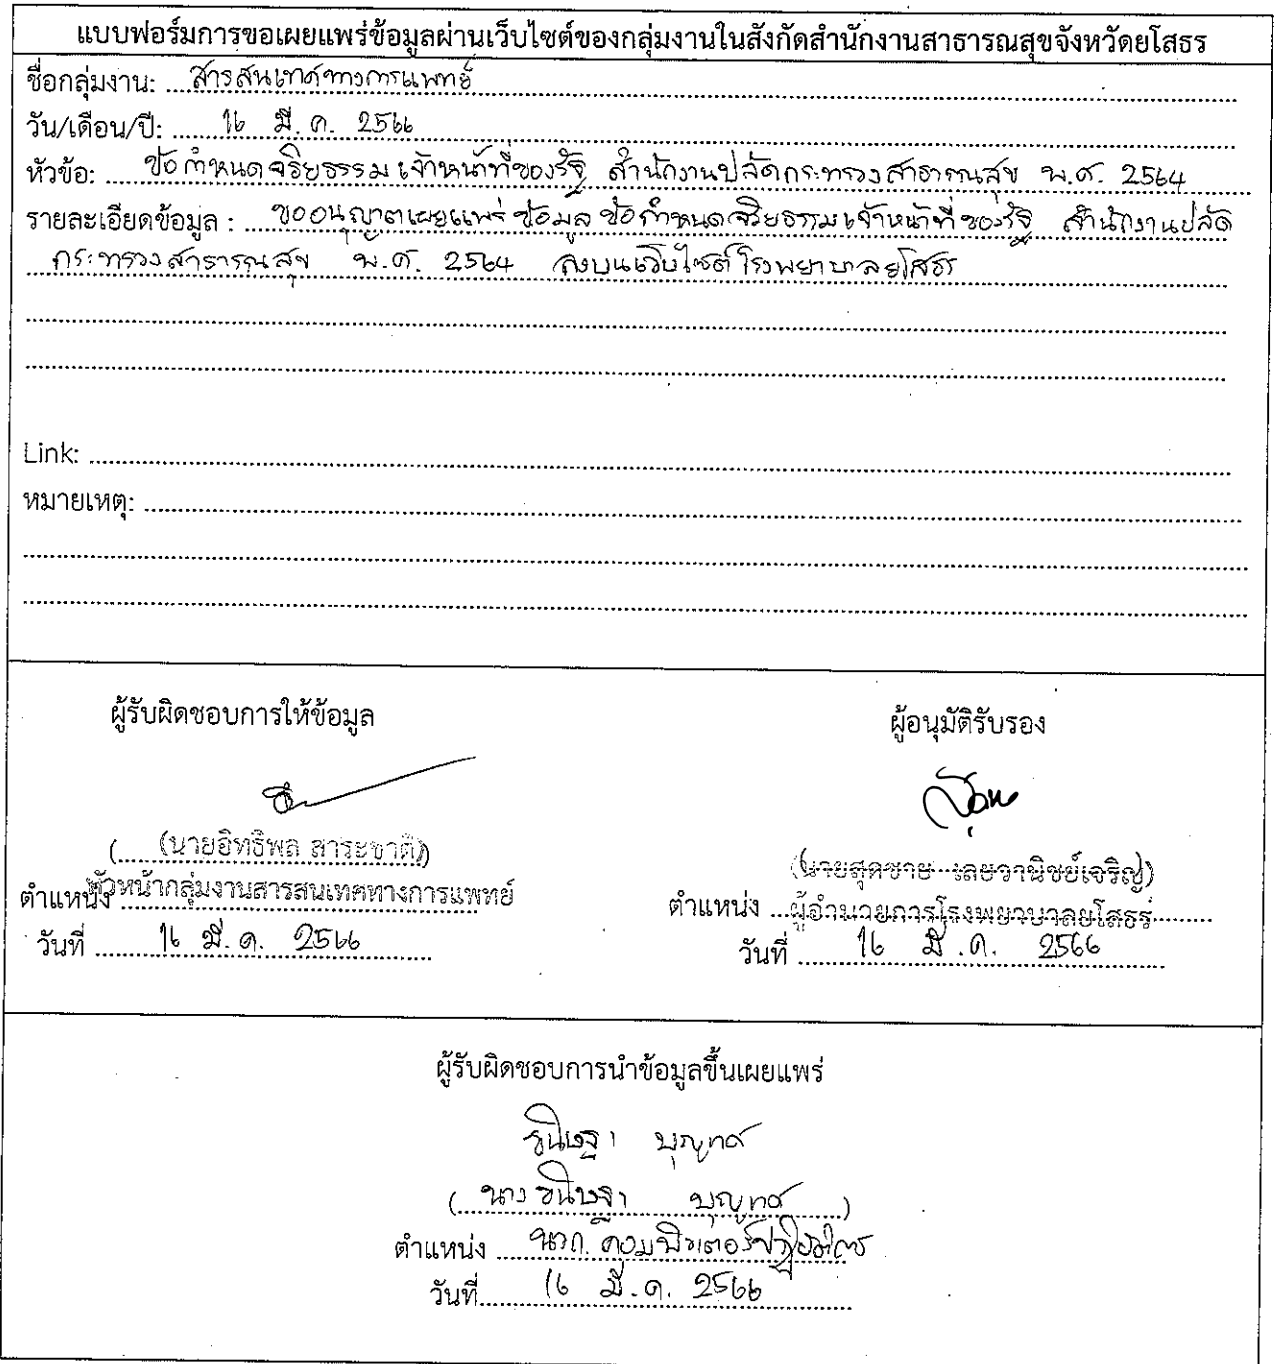 แบบฟอร์มการขอเผยแพร่ข้อมูลผ่านเว็บไซต์ของกลุ่มงานในสังกัดสำนักงานสาธารณสุขจังหวัดยโสธร
ชื่อกลุ่มงาน: สารสนเทศทางการแพทย์
วัน/เดือน/ปี: 16 มี.ค. 2566
หัวข้อ: ข้อกำหนดจริยธรรมเจ้าหน้าที่ของรัฐ สำนักงานปลัดกระทรวงสาธารณสุข พ.ศ. 2564
รายละเอียดข้อมูล : ขออนุญาตเผยแพร่ข้อมูล ข้อกำหนดจริยธรรมเจ้าหน้าที่ของรัฐ สำนักงานปลัด
กระทรวงสาธารณสุข พ.ศ. 2564 ลงบนเว็บไซต์โรงพยาบาลยโสธร
Link:
หมายเหตุ:
ผู้รับผิดชอบการให้ข้อมูล
ผู้อนุมัติรับรอง
(นายอิทธิพล สาระชาติ)
(นายสุดชาย เลยวานิชย์เจริญ)
ตำแหน่ง หัวหน้ากลุ่มงานสารสนเทศทางการแพทย์
ตำแหน่ง ผู้อำนวยการโรงพยาบาลยโสธร
วันที่ 16 มี.ค. 2566
วันที่ 16 มี.ค. 2566
ผู้รับผิดชอบการนำข้อมูลขึ้นเผยแพร่
บุญทศ
(นาง บุญทศ)
ตำแหน่ง นวก.คอมพิวเตอร์ปฏิบัติการ
วันที่ 16 มี.ค. 2566